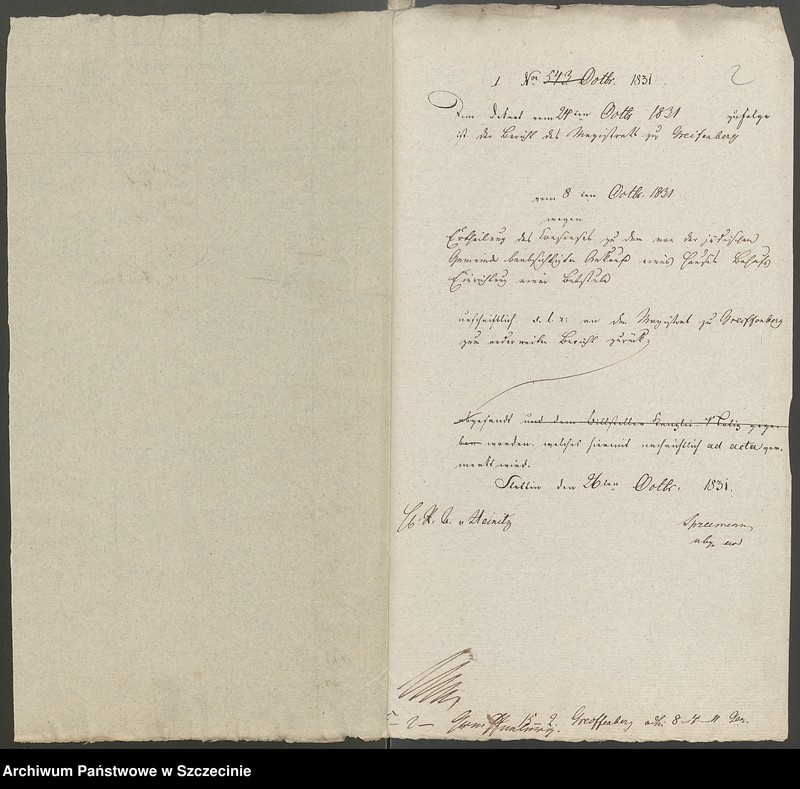 2
I Nro 543 Octbr. 1831
Dem Decret vom 24ten Octbr 1831 zufolge
ist der Bericht des Magistrats zu Greifenberg
vom 8ten Octbr. 1831
wegen
Ertheilung des Consenses zu dem von der jüdischen
Gemeinde beabsichtigten Ankauf eines Hauses Behufs
Einrichtung einer Betstube
urschriftlich s. l. r. an den Magistrat zu Greiffenberg
zum anderweiten Bericht zurück
abgesandt und dem Bittsteller Kanzlei Notiz gege-
ben worden, welches hiermit nachrichtlich ad acta ver-
merkt wird.
Stettin den 26ten Octbr. 1831.
v Meinitz
Spreemann
2 Greiffenberg 8 4 11
Archiwum Państwowe w Szczecinie